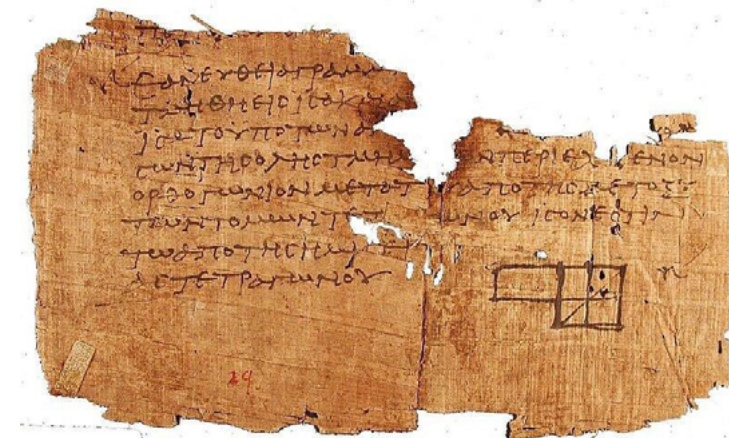 ΕΑΝΕΥΘΕΙΑΓΡΑΜΜ
ΤΜΗΘΗΕΙϹΙϹΑΚΑΙΑΝ
ΙϹΑΤΟΥΠΟΤΩΝΑ
ϹΩΝΤΗϹΟΛΗϹΤΜΗΜ ΝΠΕΡΙΕΧ ΜΕΝΟΝ
ΟΡΘΟΓΩΝΙΟΝΜΕΤΑΤ ΑΠΟΤΗϹΜΕΤΟΞΥ
ΤΩΝΤΟΜΩΝΤΕΤ ΩΝΟΥΙϹΟΝΕϹΤΙΝ
ΤΩΑΠΟΤΗϹΗΜΙ
ΑϹΤΕΤΡΑΓΩΝΟΥ
29